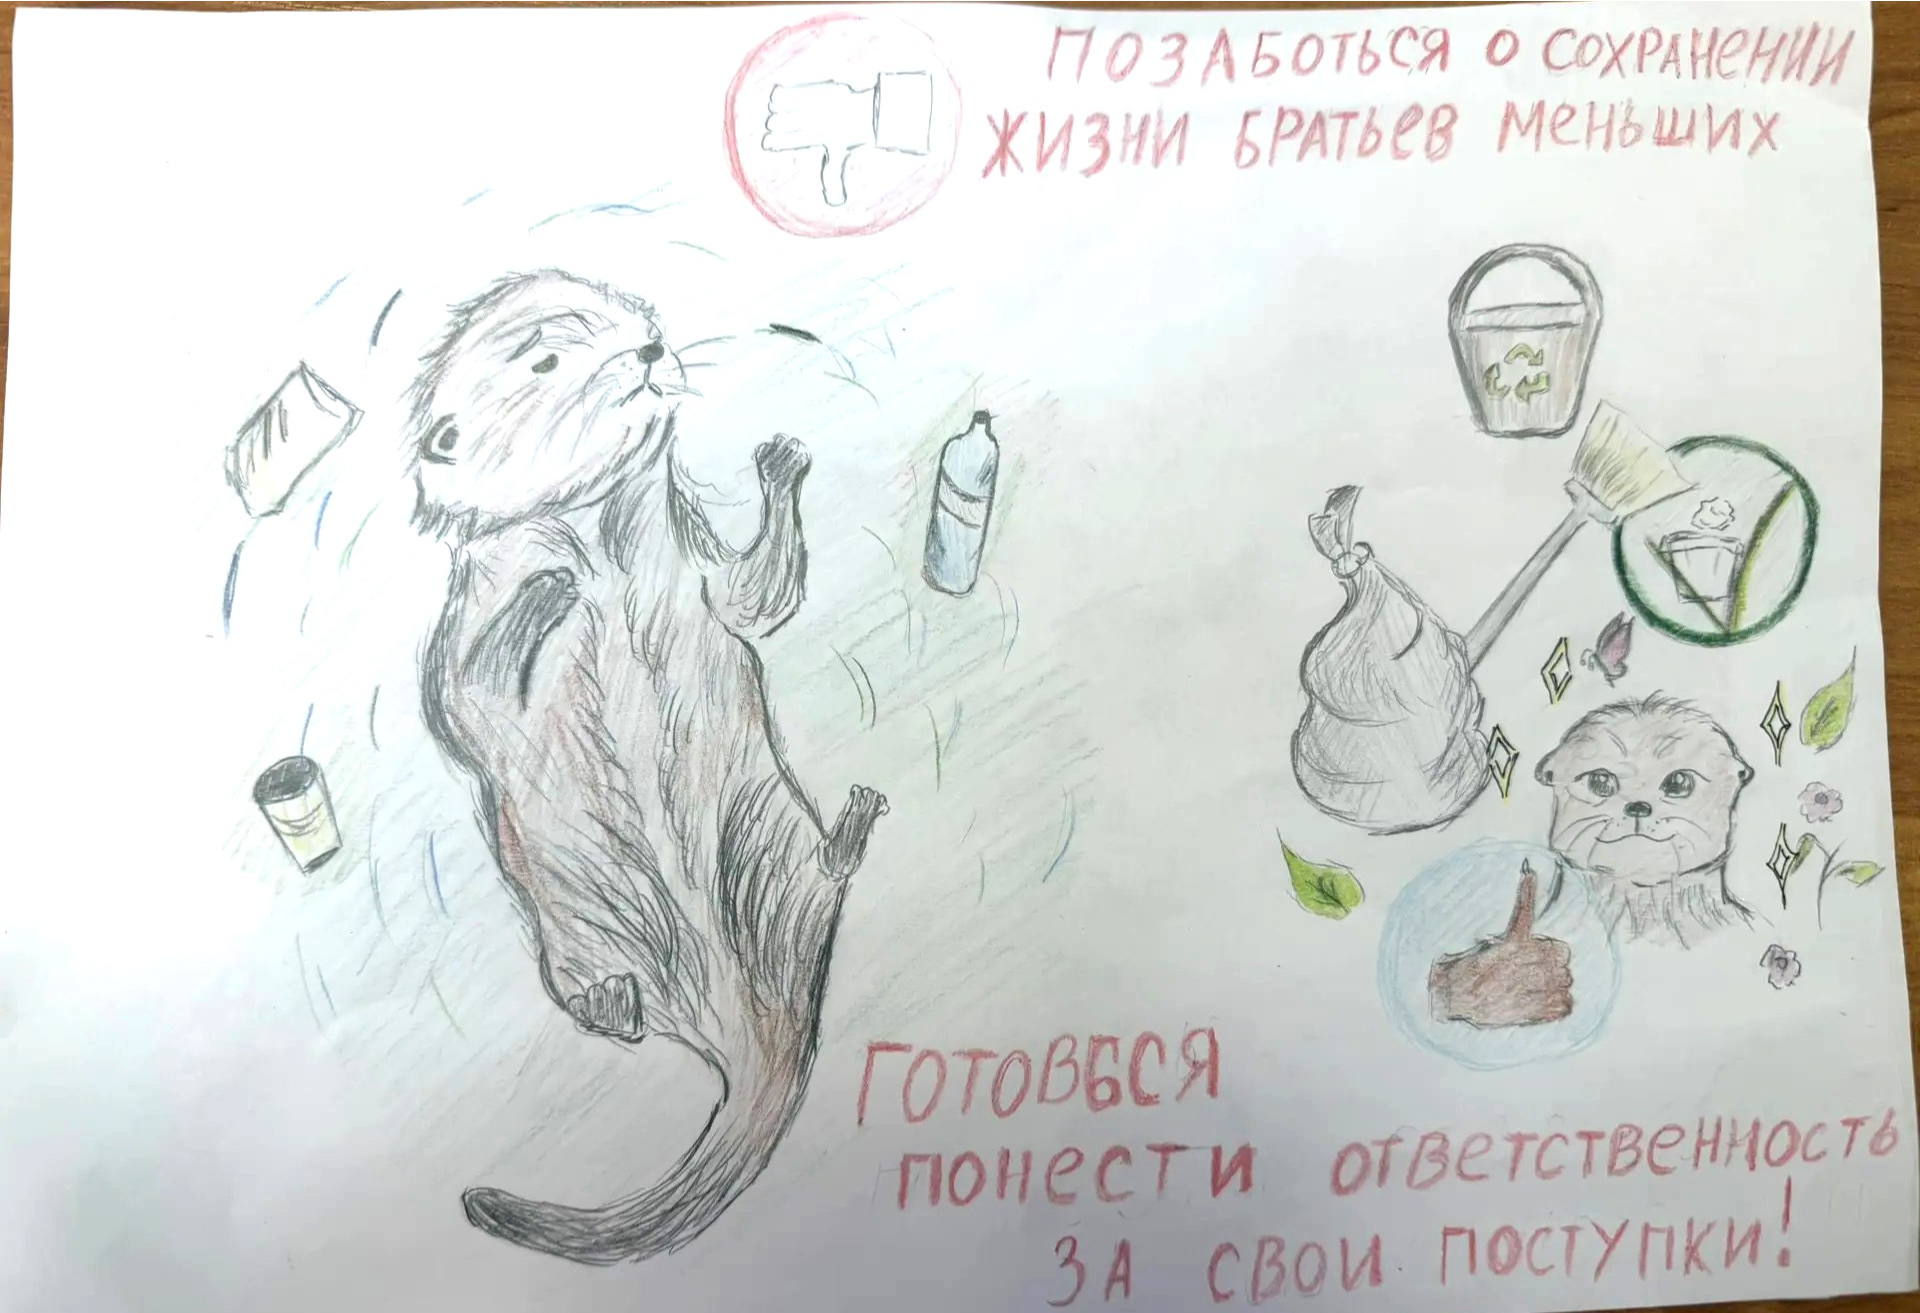 ПОЗАБОТЬСЯ О СОХРАНЕНИИ
ЖИЗНИ БРАТЬЕВ МЕНЬШИХ
ГОТОВЬСЯ
ПОНЕСТИ ОТВЕТСТВЕННОСТЬ
ЗА СВОИ ПОСТУПКИ!